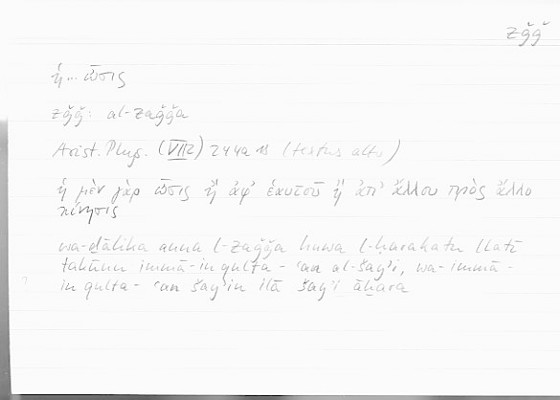 zǧǧ
ἡ... ὦσις
zǧǧ: al-zaǧǧa
Arist. Phys. (VII 2) 244a (textus alt.)
ἡ μὲν γὰρ ὦσις ἢ ἀφ' ἑαυτοῦ ἢ ἀπ' ἄλλου πρὸς ἄλλο
κίνησις
wa-ḏālika anna l-zaǧǧa huwa l-ḥarakatu llatī
takūnu immā-in qulta - ʿan al-šayʾi, wa-immā -
in qulta - ʿan šayʾin ilā šayʾi āḫara